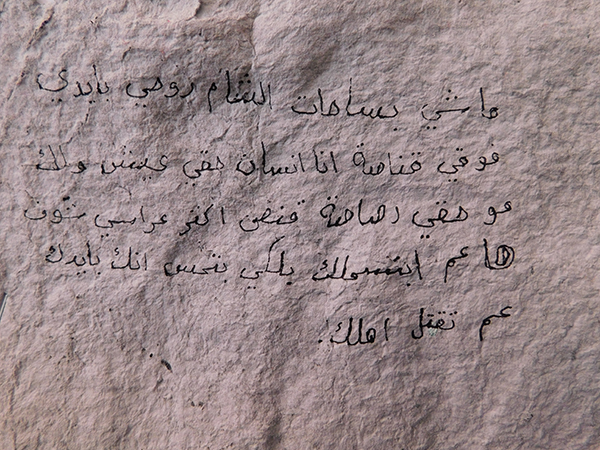 ماشي بساحات الشام روحي بايدي
فوقي قناصة انا انسان حقي عيش ولك
مو حقي رصاصة قنص اكتر عراسي شوف
ها عم ابتسملك بلكي بتحس انك بايدك
عم تقتل اهلك!